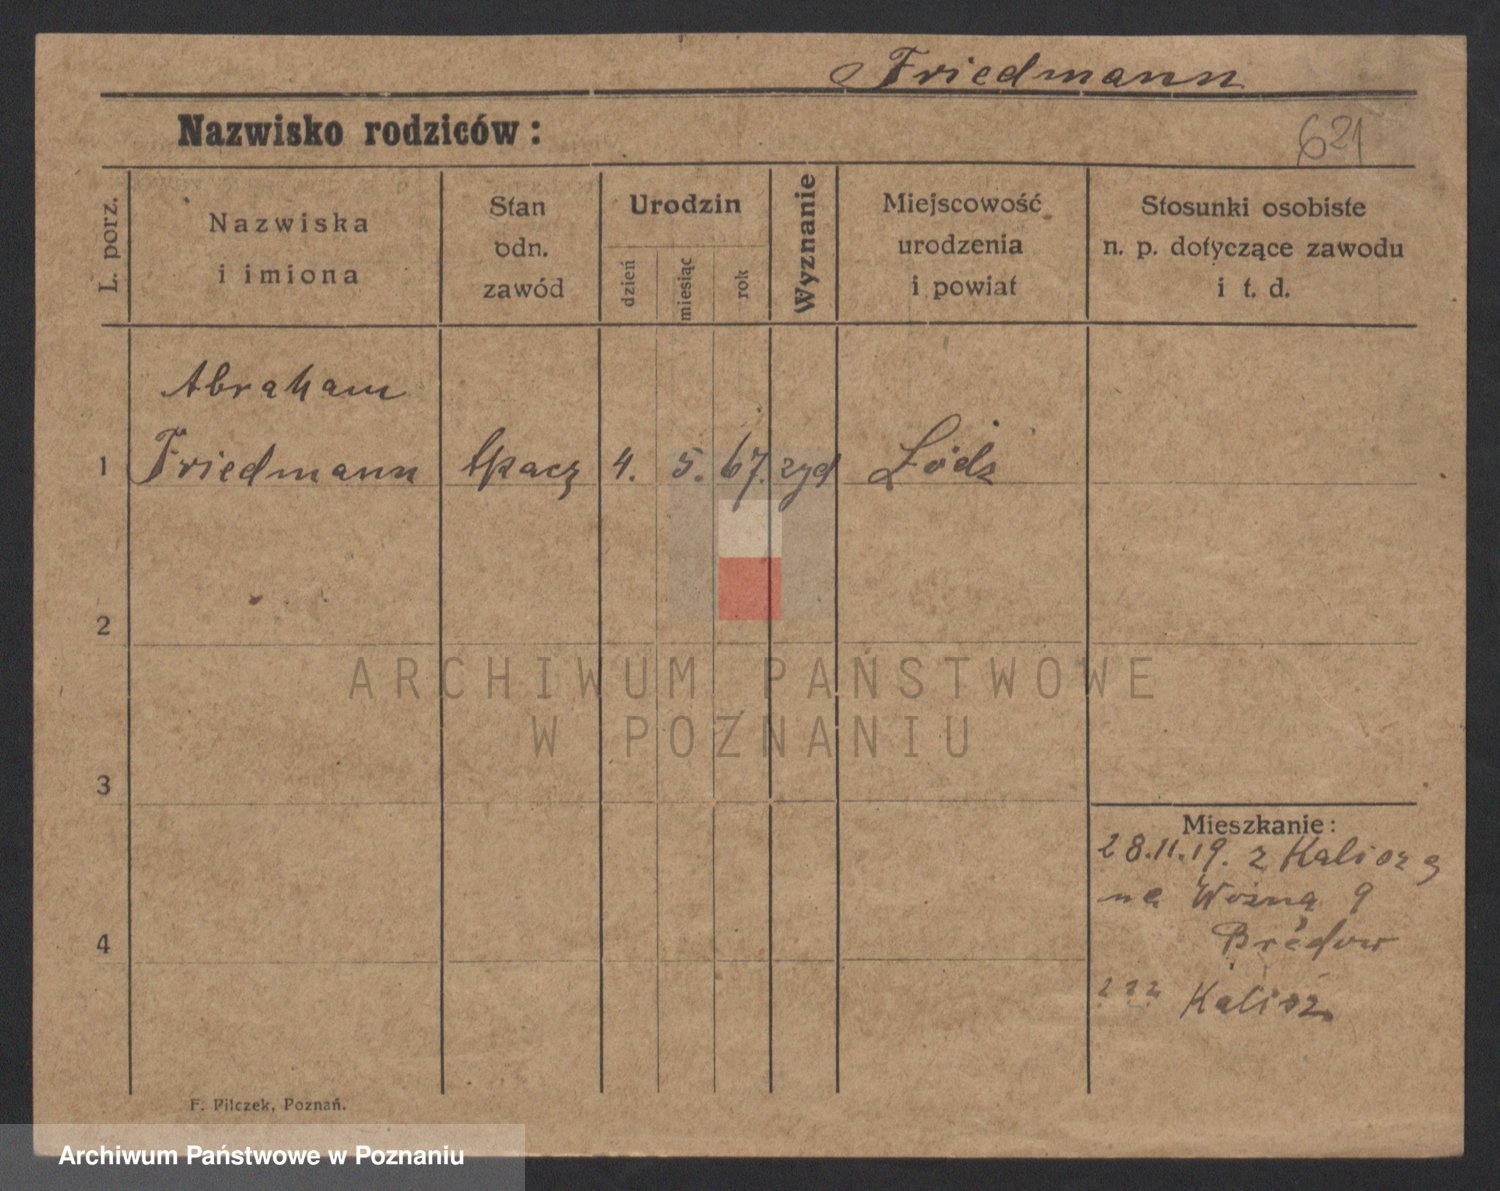 Friedmann
Nazwisko rodziców:
621
L. porz.
Nazwiska
i imiona
Stan
odn.
zawód
Urodzin
dzień
miesiąc
rok
Wyznanie
Miejscowość
urodzenia
i powiat
Stosunki osobiste
n. p. dotyczące zawodu
i t. d.
Abraham
1 Friedmann tkacz 4. 5. 67. żyd Łódź
2
ARCHIWUM PAŃSTWOWE
W POZNANIU
3
Mieszkanie:
28.11.19. z Kalisza
na Woźną 9
4
Kalisz
F. Pilczek, Poznań.
Archiwum Państwowe w Poznaniu